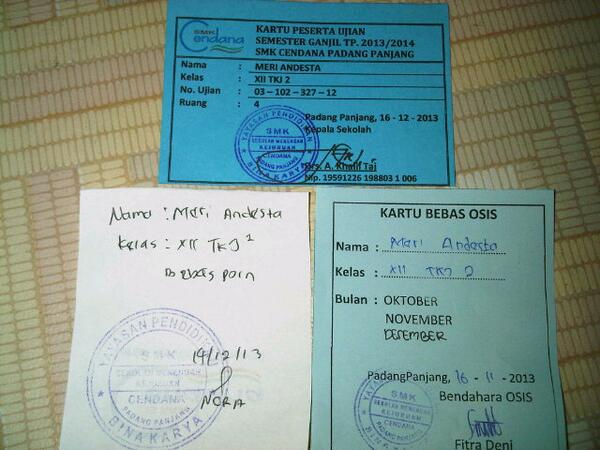 SMK
Cendana
KARTU PESERTA UJIAN
SEMESTER GANJIL TP. 2013/2014
SMK CENDANA PADANG PANJANG
Nama : MERI ANDESTA
Kelas : XII TKJ 2
No. Ujian : 03 – 102 – 327 – 12
Ruang : 4
Padang Panjang, 16 - 12 - 2013
Kepala Sekolah
YAYASAN PENDIDIKAN
SMK
SEKOLAH MENENGAH
KEJURUAN
CENDANA
PADANG PANJANG
BINA KARYA
Drs. A. Khalif Taj
Nip. 19591226 198803 1 006
Nama : Meri Andesta
Kelas : XII TKJ 2
Bebas poin
YAYASAN PENDIDIKAN
SMK
SEKOLAH MENENGAH
KEJURUAN
CENDANA
PADANG PANJANG
BINA KARYA
14/12/13
NORA
KARTU BEBAS OSIS
Nama : Meri Andesta
Kelas : XII TKJ 2
Bulan : OKTOBER
NOVEMBER
DESEMBER
PadangPanjang, 16 - 11 - 2013
Bendahara OSIS
YAYASAN PENDIDIKAN
SMK
SEKOLAH MENENGAH
KEJURUAN
CENDANA
PADANG PANJANG
Fitra Deni